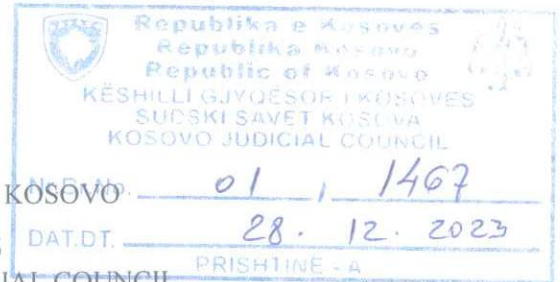 Republika e Kosovës
Republika Kosovo
Republic of Kosovo
KËSHILLI GJYQËSOR I KOSOVËS
SUDSKI SAVET KOSOVA
KOSOVO JUDICIAL COUNCIL
KOSOVO
01, 1467
DAT.DT. 28. 12. 2023
PRISHTINË - A
COUNCIL